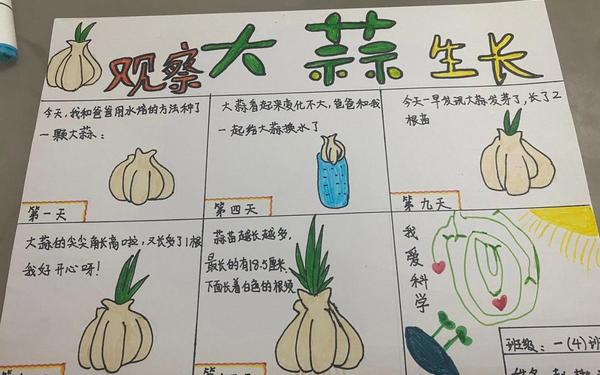 观察大蒜生长
今天，我和爸爸用水培的方法种了
一颗大蒜：
第一天
大蒜看起来变化不大，爸爸和我
一起给大蒜换水了
第四天
今天一早发现大蒜发芽了，长了2
根苗
第九天
大蒜的尖尖角长高啦，又长多了1根
我好开心呀！
蒜苗越长越多，
最长的有18.5厘米
下面长着白色的根须
我
爱
科
学
班级：一(4)班
姓名